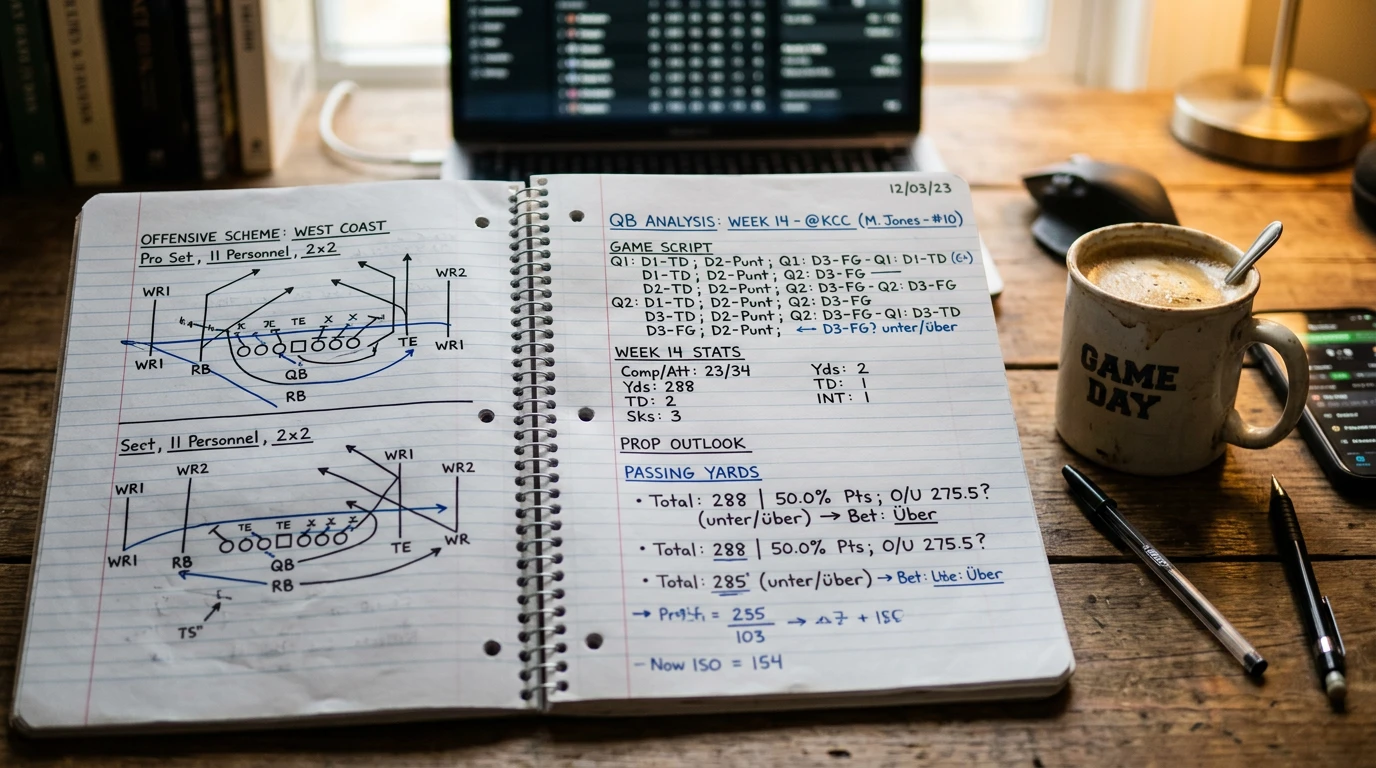 OFFENSIVE SCHEME: WEST COAST
Pro Set, 11 Personnel, 2x2
WR2
WR1
TE
WR1
RB
QB
TE
WR1
RB
Sect, 11 Personnel, 2x2
WR1
WR2
WR1
WR2
TE TE
WR1
RB
QB
TE
WR
RB
TS"
12/03/23
QB ANALYSIS: WEEK 14 - @KCC (M. Jones - #10)
GAME SCRIPT
Q1: D1-TD; D2-Punt; Q1: D3-FG - Q1: D1-TD
D1-TD; D2-Punt; Q2: D3-FG —
D2-TD; D2-Punt; Q2: D3-FG - Q2: D3-FG
Q2: D1-TD; D2-Punt; Q2: D3-FG
D3-TD; D2-Punt; Q2: D3-FG - Q1: D3-TD
D3-FG; D2-Punt; ← D3-FG? unter/über
WEEK 14 STATS
Comp/Att: 23/34 Yds: 2
Yds: 288 TD: 1
TD: 2 INT: 1
Sks: 3
PROP OUTLOOK
PASSING YARDS
• Total: 288 | 50.0% Pts; O/U 275.5?
(unter/über) → Bet: Über
• Total: 288 | 50.0% Pts; O/U 275.5?
• Total: 285' (unter/über) → Bet: Über
→ = 255
103
- Now ISO = 154
GAME
DAY